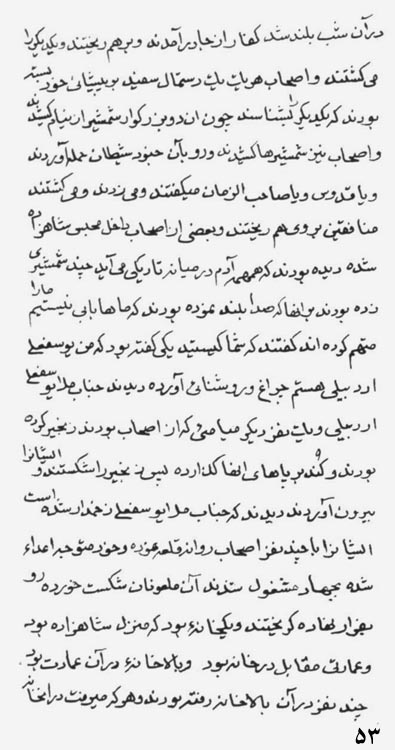 در آن شب بلند شد کفار از جا در آمدند و بر هم ریختند و یکدیگر را
می کشتند و اصحاب هر یک یک دستمال سفید بر پیشانی خود بسته
بودند که یکدیگر را بشناسند چون آن دو بزرکوار شمشیر از نیام کشیدند
و اصحاب نیز شمشیرها کشیدند و رو بآن جنود شیطان حمله آوردند
و یا قدوس و یا صاحب الزمان میکفتند و می زدند و می کشتند
منافقین بر روی هم ریختند و بعضی از اصحاب داخل محبس شاهزاده
شده دیده بودند که همهمه آدم در میانه تاریکی می آید چند شمشیری
زده بودند برانها که صدا بلند نموده بودند که ماها بابی نیستیم مارا
متهم کرده اند کفتند که شما کیستید یکی کفته بود که من یوسفعلی
اردبیلی هستم چراغ و روشنائی آورده دیدند جناب ملا یوسفعلی
اردبیلی و یک نفر دیکر میامئی که از اصحاب بودند زنجیر کرده
بودند و کند بر پاهای انها کذارده پس زنجیر را شکستند و ایشانرا
بیرون آوردند دیدند که جناب ملا یوسفعلی زخمدار شده است
ایشانرا با چند نفر اصحاب روانه قلعه نموده و خود متوجه اعداء
شده بجهاد مشغول شدند آن ملعونان شکست خورده رو
بفرار نهاده کریختند و یکخانهٔ بود که منزل شاهزاده بود
و عمارتی مقابل در خانه بود و بالاخانهٔ در آن عمارت بود
چند نفر در آن بالاخانه رفته بودند و هر کر میرفت در انخانه
۵۳